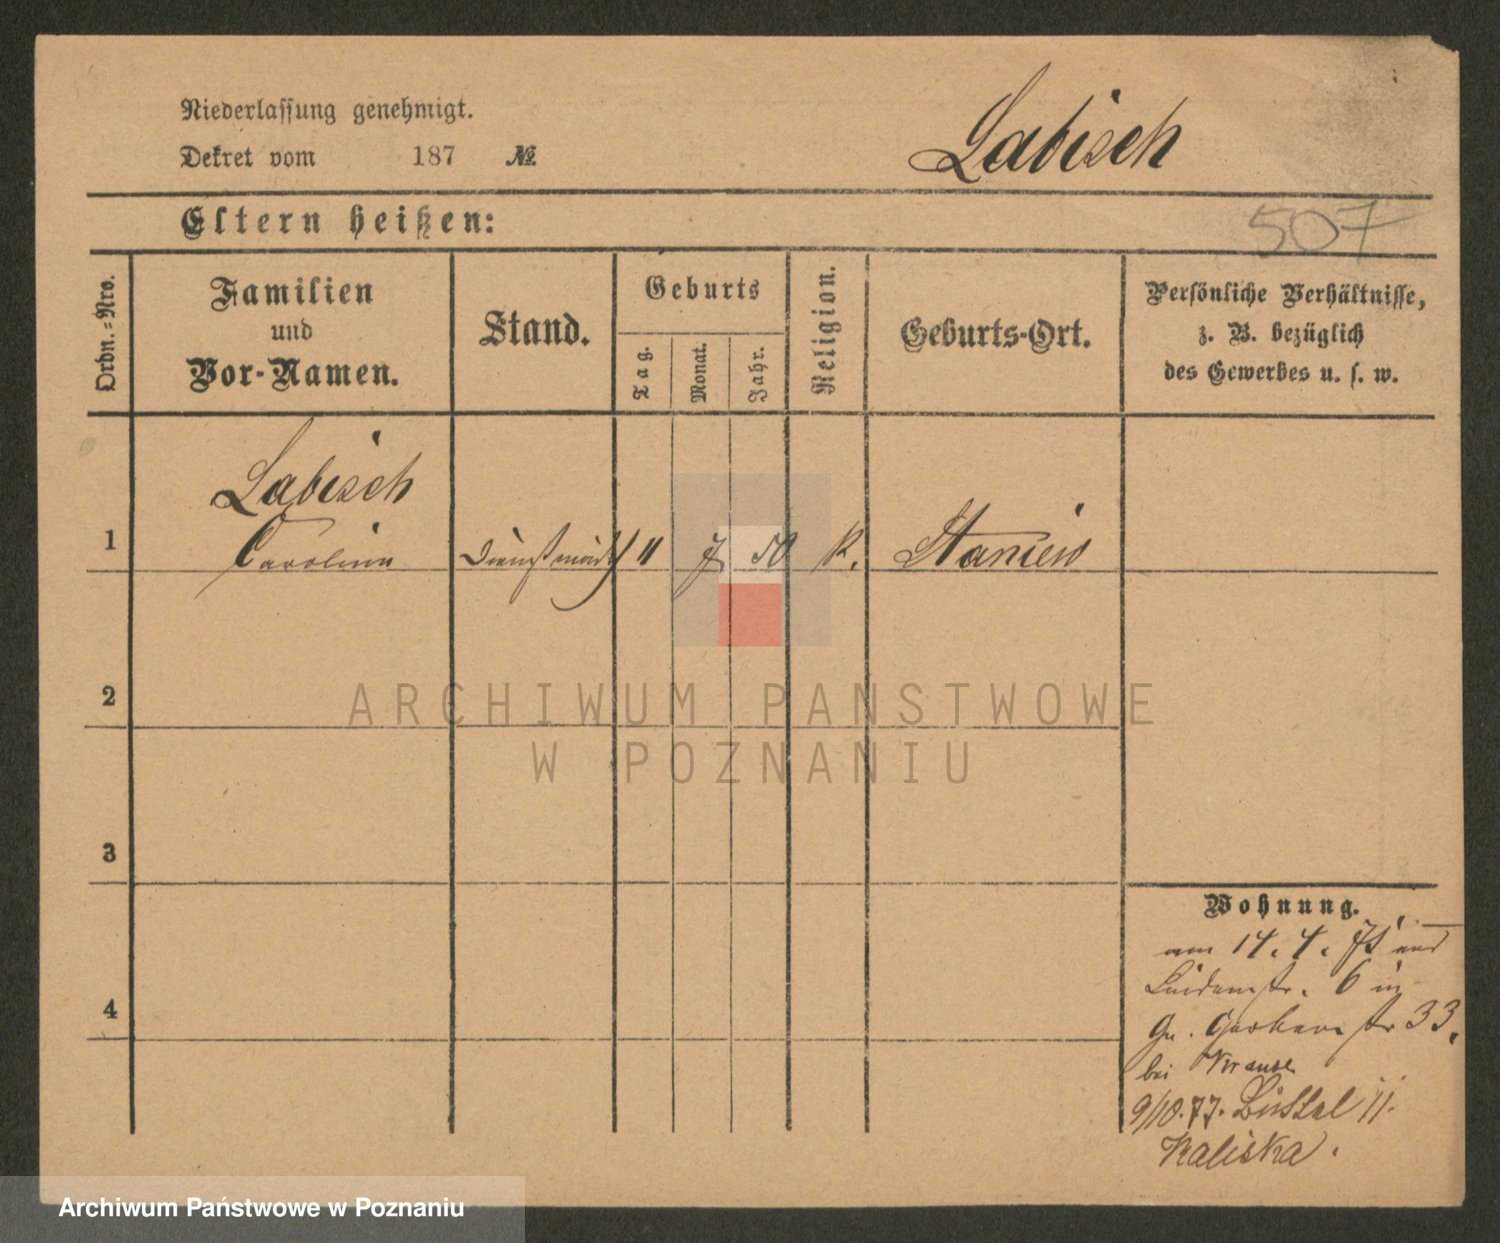 Niederlassung genehmigt.
Dekret vom 187 №
Labisch
507
Eltern heißen:
Ordn.-Nro.
Familien
und
Vor-Namen.
Stand.
Geburts
Tag.
Monat.
Jahr.
Religion.
Geburts-Ort.
Persönliche Verhältnisse,
z. B. bezüglich
des Gewerbes u. s. w.
1
Labisch
Carolina
Dienstmädch
50
K.
Staniew
2
3
4
ARCHIWUM PAŃSTWOWE
W POZNANIU
Wohnung.
14. 4.
6 in
Gr. Gerberstr 33.
bei Krause
9/10.77. Büttel 11.
Kaliska.
Archiwum Państwowe w Poznaniu